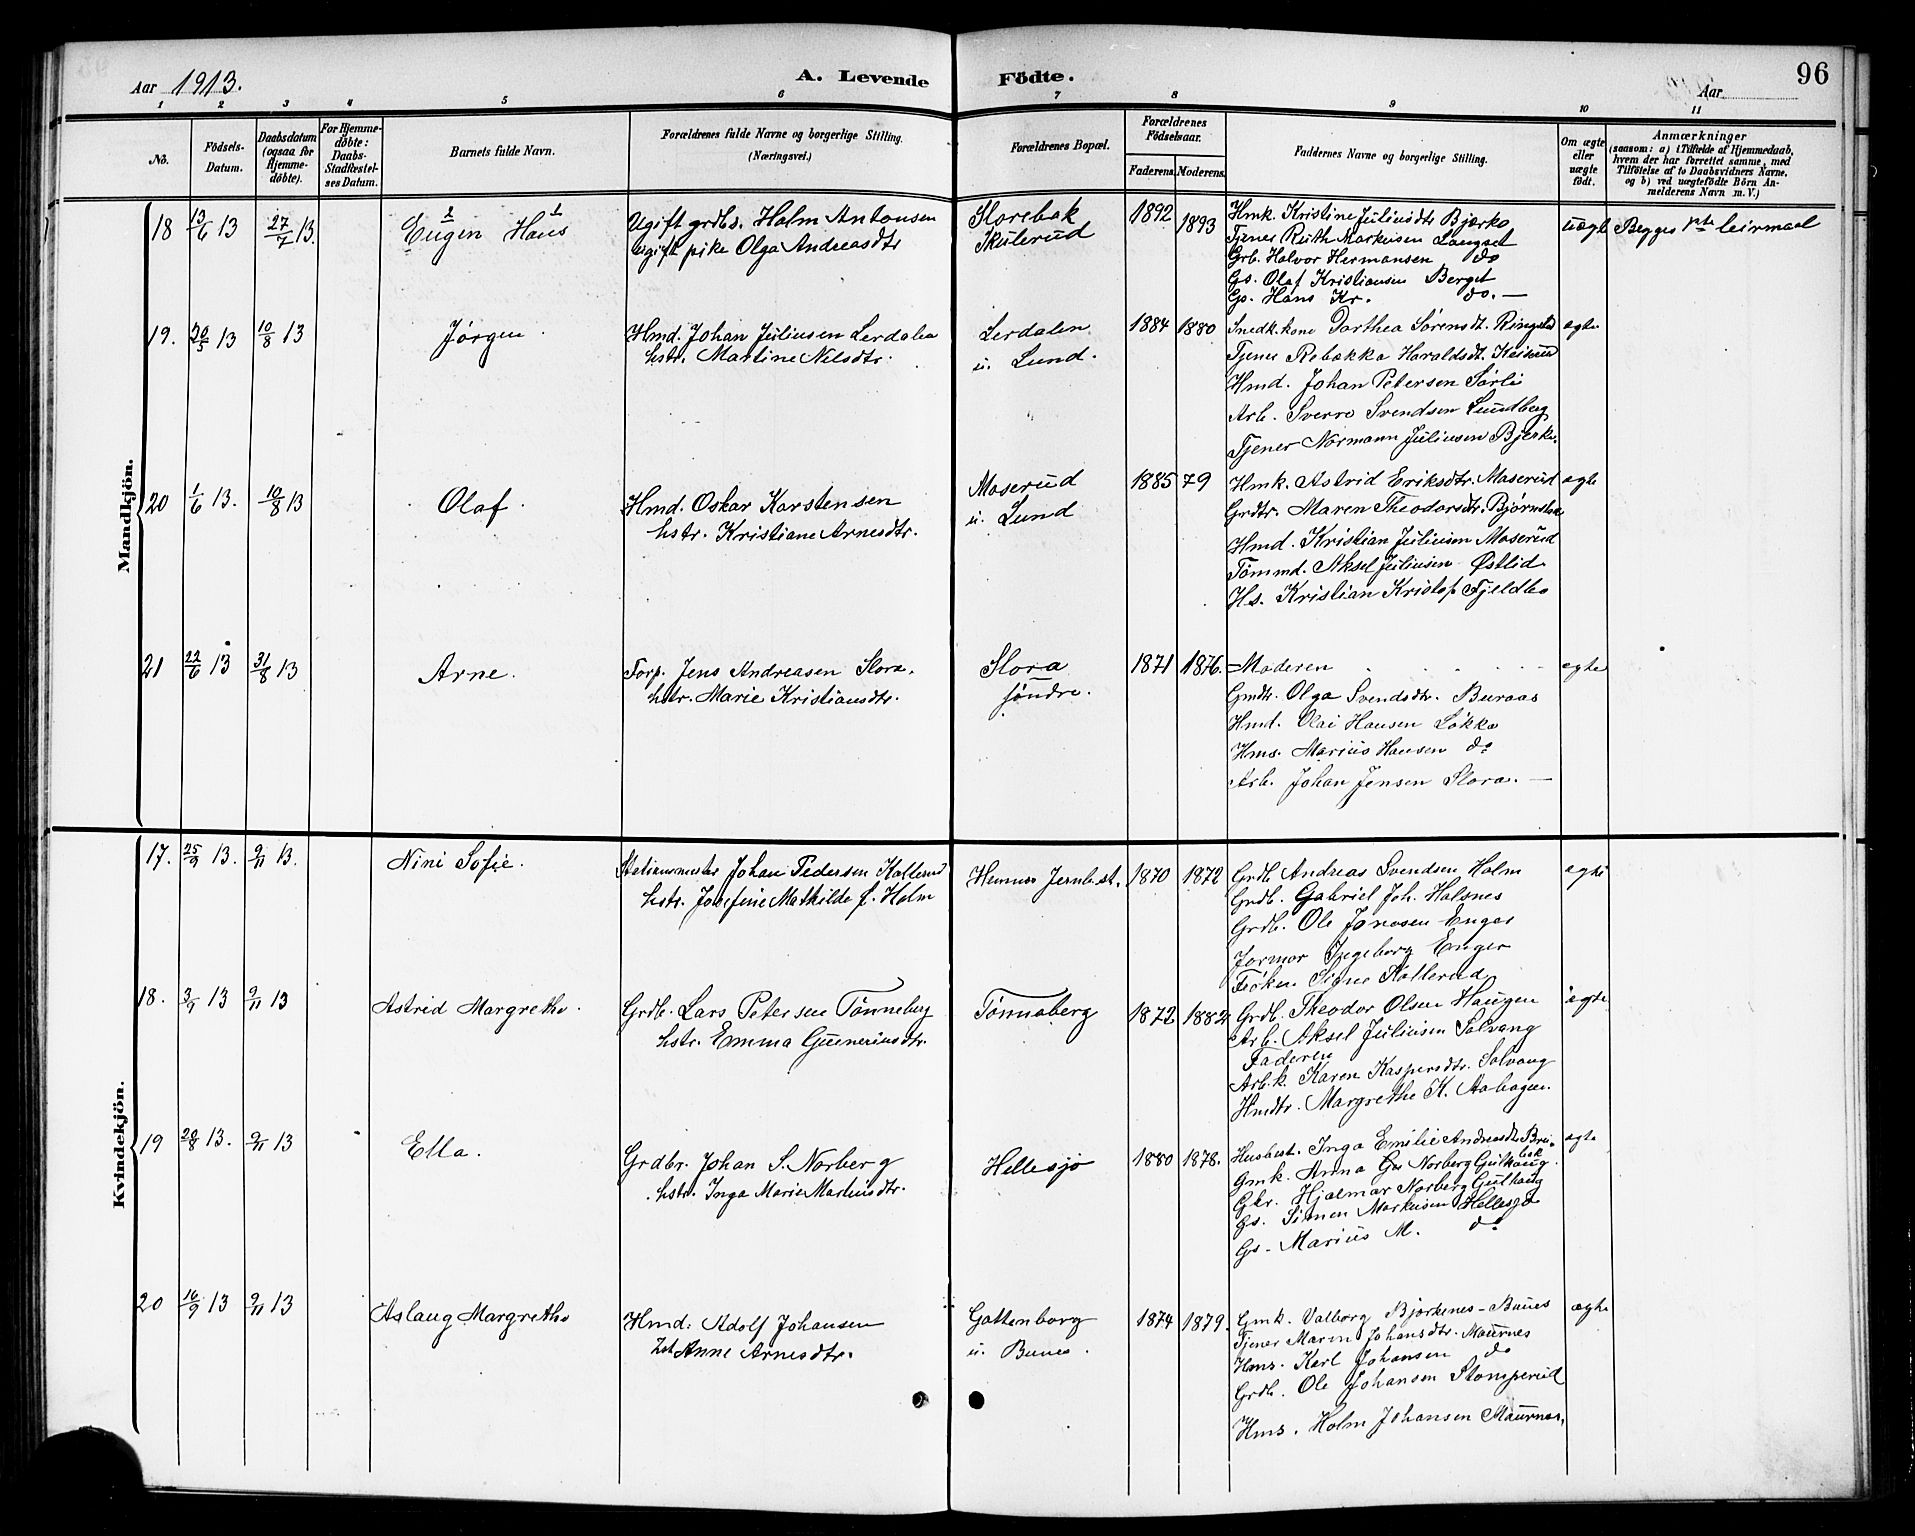 96
Aar 1913.
A. Levende Födte.
Aar
1 2 3 4 5 6 7 8 9 10 11
No.
Födsels-
Datum.
Daabsdatum
(ogsaa for
Hjemme-
døbte).
For Hjemme-
døbte:
Daabs-
Stadfæstel-
ses Datum.
Barnets fulde Navn.
Forældrenes fulde Navne og borgerlige Stilling.
(Næringsvei.)
Forældrenes Bopæl.
Forældrenes
Födselsaar.
Faderens. Moderens.
Faddernes Navne og borgerlige Stilling.
Om ægte
eller
uægte
født.
Anmærkninger
(saasom: a) i Tilfælde af Hjemmedaab,
hvem der har forrettet samme, med
Tilføielse af to Daabsvidners Navne,
og b) ved uægtefødte Börn An-
melderens Navn m. V.)
Mandkjön.
18 13/6 13 27/7 13. Eugen Hans
2 1
Ugift grdbs. Holm Antonsen
Ugift pike Olga Andreasdtr
Storebak
Skulerud
1892 1893
Hmk. Kristine Juliusdtr Bjerke
Tjener Ruth Markusen Langset
Grb. Halvor Hermansen do
Gs. Olaf Kristiansen Berget
Gs. Hans Kr. do. —
uægte Begges 1ste leirmaal
19. 20/5 13 10/8 13 Jørgen.
Hmd. Johan Juliusen Lerdalen
hstr. Martine Nilsdtr.
Lerdalen
u. Lund.
1884 1880
Snedk. kone Dorthea Sørensdt. Ringstad
Tjener Rebekka Haraldsdt. Keisrud
Hmd. Johan Petersen Sørli
Arb. Sverre Svendsen Lundberg
Tjener Normann Juliusen Bjerke.
egte
20 1/6 13. 10/8 13 Olaf.
Hmd. Oskar Karstensen
hstr. Kristiane Arnesdtr.
Moserud
u. Lund
1885 79
Hmk. Astrid Eriksdtr. Moserud
Grdtr. Maren Theodorsdtr. Bjørnstad
Hmd. Kristian Juliusen Moserud
Tømmd. Aksel Juliusen Østlid
Hs. Kristian Kristof Fjeldbo
egte
21 22/6 13 31/8 13 Arne.
Torp. Jens Andreasen Slora.
hstr. Marie Kristiansdtr.
Slora
søndre.
1871 1876.
Moderen
Grmdtr. Olga Svendsdtr. Buraas
Hmd. Olai Hansen Løkka
Hms. Marius Hansen do
Arb. Johan Jensen Slora. —
egte
Kvindekjön.
17. 25/9 13. 9/11 13. Nini Sofie.
Stationsmester Johan Pedersen Kollerud
hstr. Josefine Mathilde f. Holm
Hemnes Jernb.st.
1870 1872
Grdb. Andreas Svendsen Holm
Grdb. Gabriel Joh. Halsnes
Grdb. Ole Jonesen Enger
Jormor Ingeborg Enger
Frøken Signe Kollerud
egte
18. 3/9 13 9/11 13 Astrid Margrethe.
Grdb. Lars Petersen Tønneberg
hstr. Emma Gunneriusdtr.
Tønneberg
1872 1882
Grdb. Theodor Olsen Haugen
Arb. Aksel Juliusen Solvang
Faderen
Arb.k. Karen Kaspersdtr. Solvang
Hmdtr. Margrethe K. Aabogen.
egte
19 28/8 13. 9/11 13 Ella.
Grdbr. Johan S. Norberg
hstr. Inga Marie Martinsdtr.
Hellesjø
1880 1878.
Husbest. Inga Emilie Andreasdtr. Brei-
bak
Gmk. Anna Norberg Gulhaug.
Gbr. Hjalmar Norberg Gulhaug
Gs. Simen Markusen Hellesjø
Gs. Marius M. do
egte
20 16/9 13 9/11 13 Aslaug Margrethe
Hmd. Adolf Johansen
hst Anne Arnesdtr.
Gottenborg
u. Bunes.
1874 1879.
Gmk. Valborg Bjerkenes-Bunes
Tjener Marin Johansdtr. Maurnes
Hms. Karl Johansen do
Grdb. Ole Johansen Stomperud
Hms. Holm Johansen Maurnes.
ægte